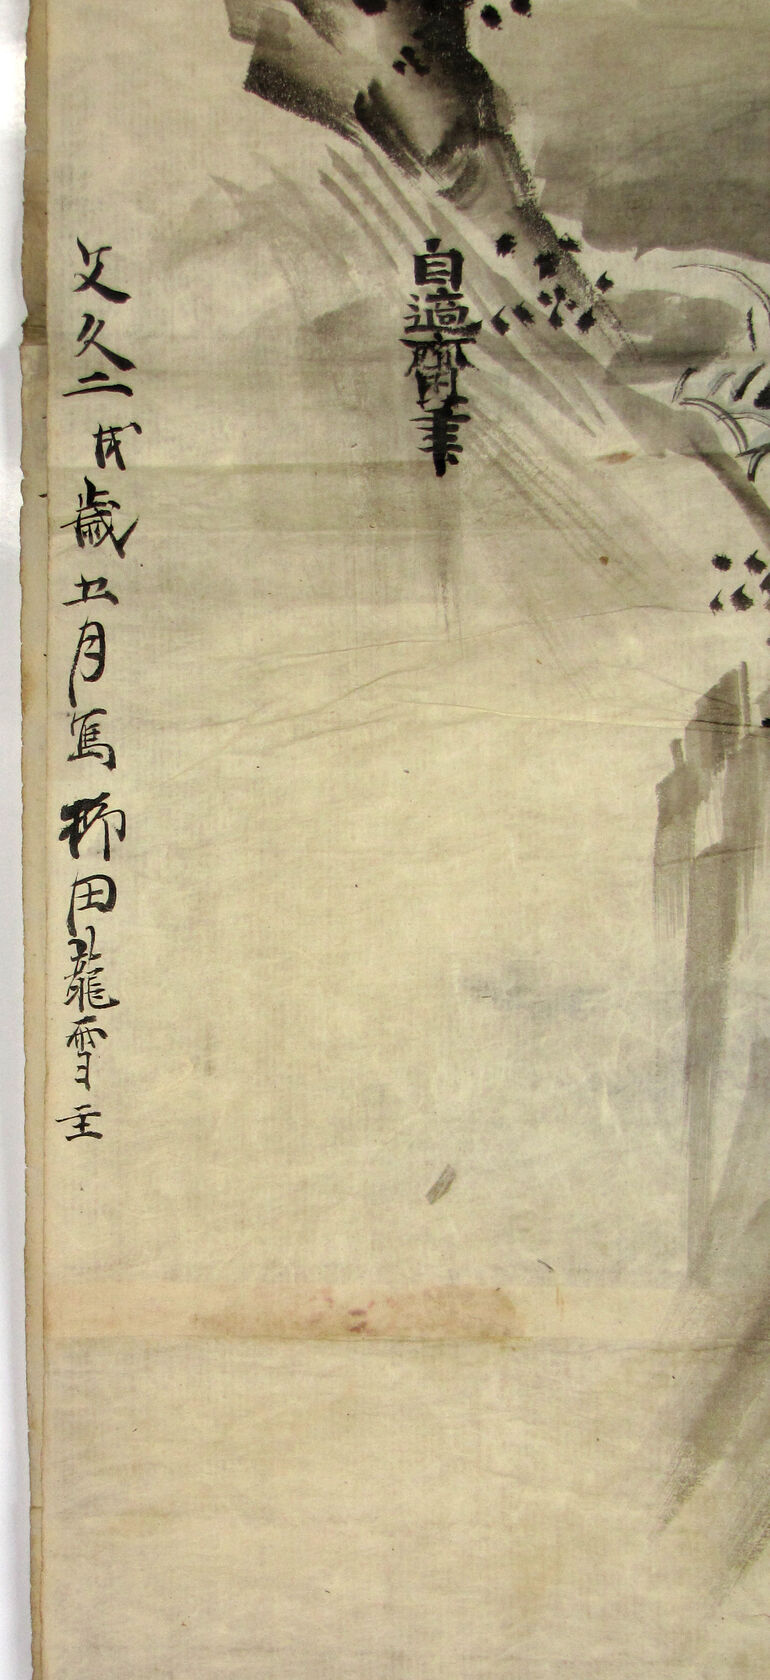 自適齋筆
文久二戌歳五月写柳田龍雪主